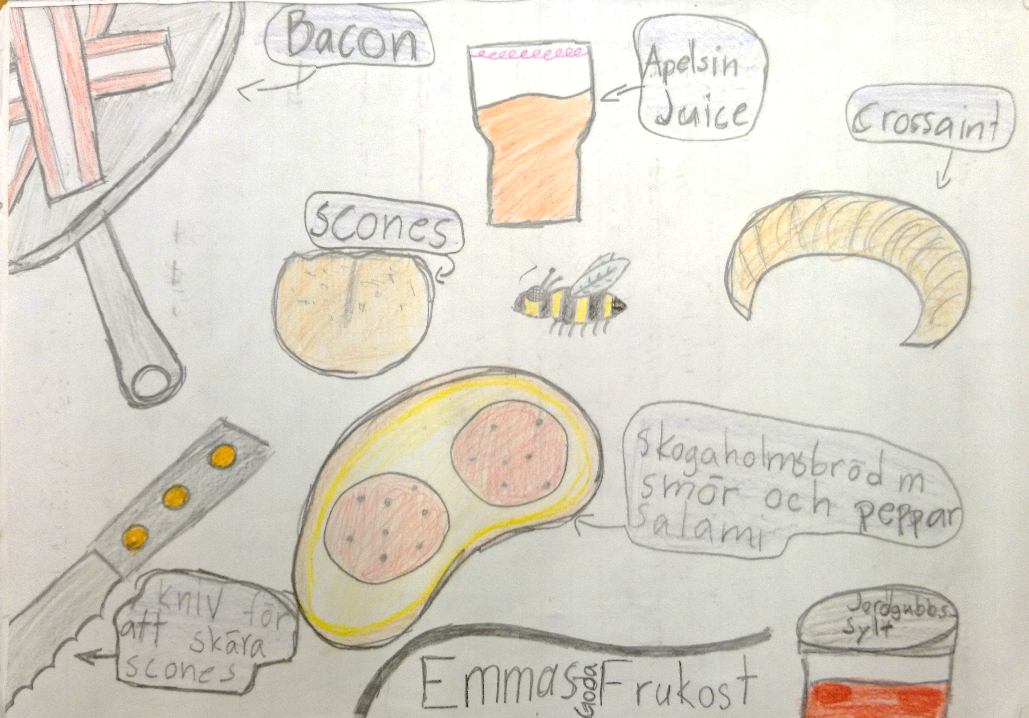 Bacon
Apelsin
Juice
Crossaint
Scones
Skogaholmsbröd m
smör och peppar
salami
kniv för
att skära
scones
Jordgubbs
Sylt
Emmas Goda Frukost